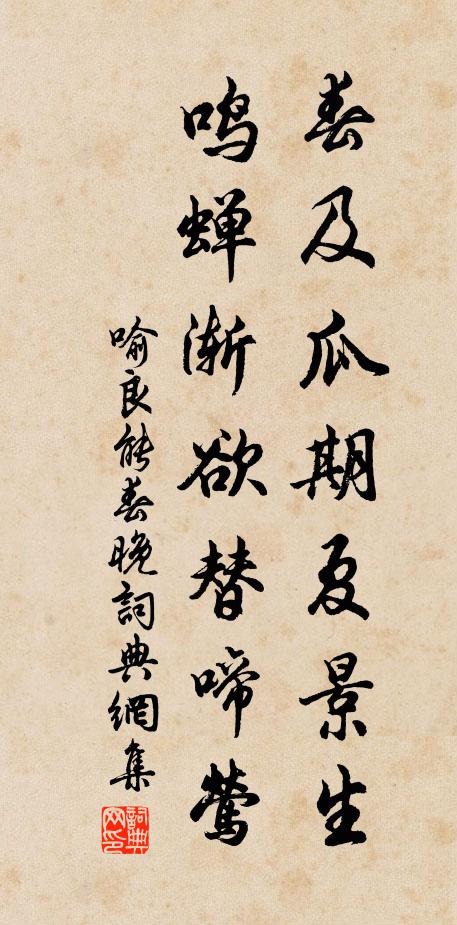 春及瓜期夏景生
鸣蝉渐欲替啼莺
喻良能春晚詞典網集
詞典网印